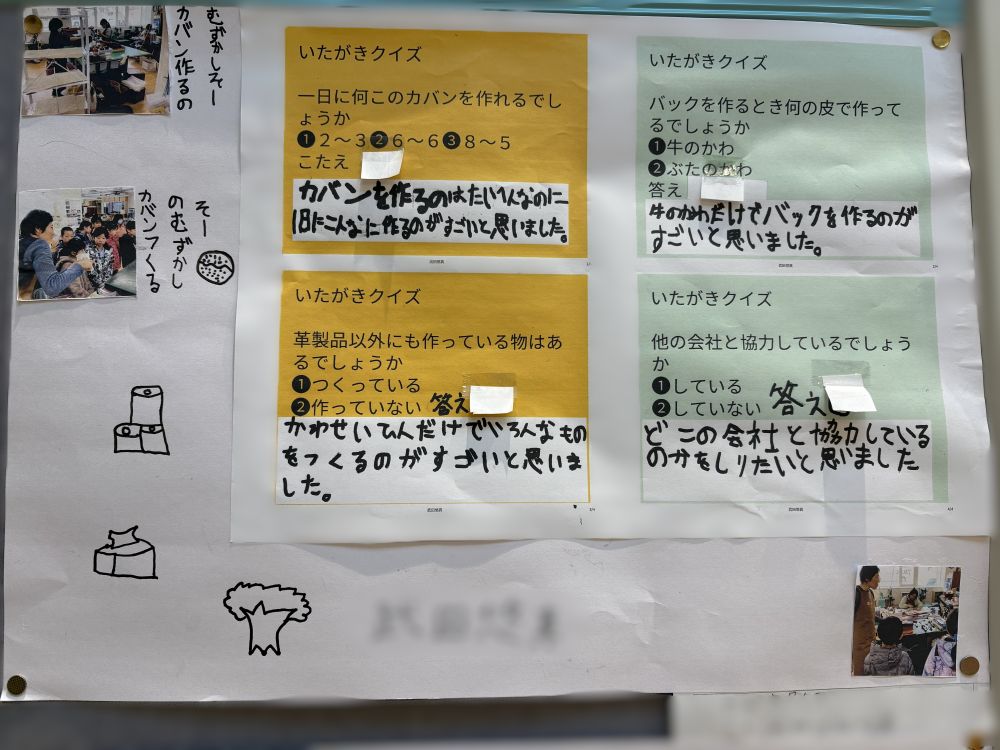 むずかしそー
カバン作るの
そー
のむずかし
カバンつくる
いたがきクイズ
一日に何このカバンを作れるでし
ょうか
❶2～3❷6～6❸8～5
こたえ
カバンを作るのはたいへんなのに
1日にこんなに作るのがすごいと思いました。
いたがきクイズ
バックを作るとき何の皮で作って
るでしょうか
❶牛のかわ
❷ぶたのかわ
答え
牛のかわだけでバックを作るのが
すごいと思いました。
いたがきクイズ
革製品以外にも作っている物はあ
るでしょうか
❶つくっている
❷作っていない 答え
かわせいひんだけでいろんなもの
をつくるのがすごいと思いま
した。
いたがきクイズ
他の会社と協力しているでしょう
か
❶している
❷していない 答え
どこの会社と協力している
のかをしりたいと思いました